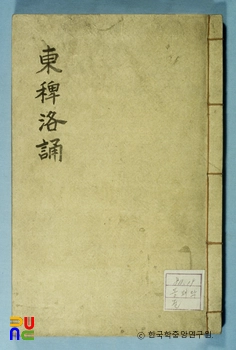 東稗洛誦
ⓒ 한국학중앙연구원